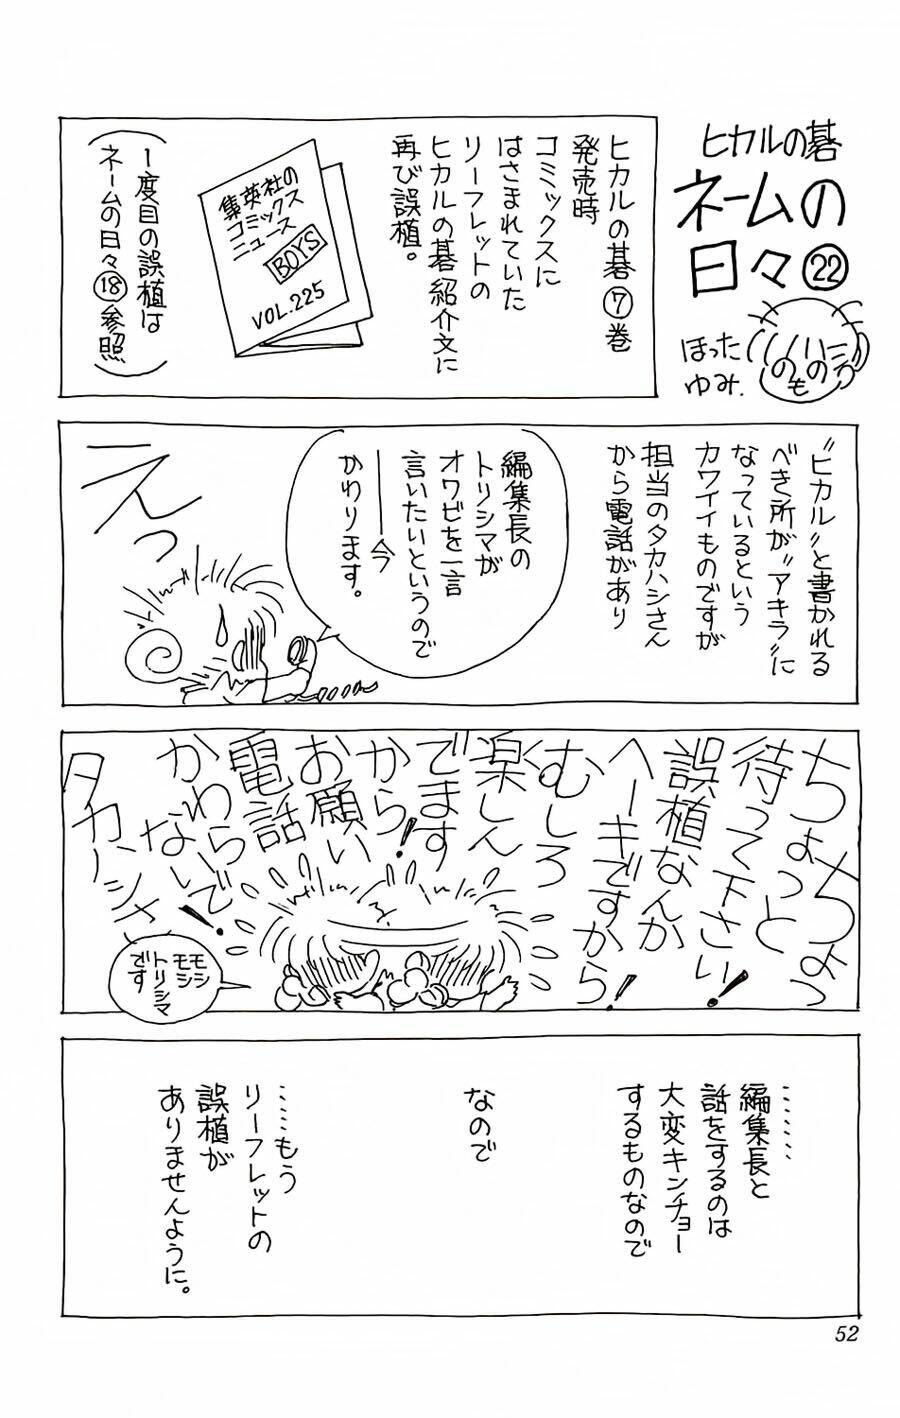 ヒカルの碁
ネームの
日々㉒
ほった
ゆみ.
ヒカルの碁⑦巻
発売時
コミックスに
はさまれていた
リーフレットの
ヒカルの碁紹介文に
再び誤植。
集英社の
コミックス
ニュース
BOYS
VOL.225
(1度目の誤植は
ネームの日々⑱参照)
"ヒカル"と書かれる
べき所が"アキラ"に
なっているという
カワイイものですが
担当のタカハシさん
から電話があり
編集長の
トリシマが
オワビを一言
言いたいというので
――今
かわります。
えっ
ちょっちょっ
ちょっと
待って下さい!
誤植なんか
ヘーキですから!
むしろ
楽しん
でます
から!
お願い
電話
かわらないで!
タカハシさ
モシ
モシ
トリシマ
です
………
編集長と
話をするのは
大変キンチョー
するものなので
なので
……もう
リーフレットの
誤植が
ありませんように。
52